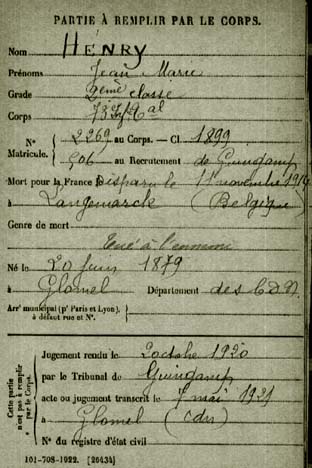 PARTIE À REMPLIR PAR LE CORPS.
Nom HENRY
Prénoms Jean Marie
Grade 2ème classe
Corps 73
N° 2269 au Corps. — Cl. 1899
Matricule. 506 au Recrutement de Guingamp
Mort pour la France Disparu le 11 novembre 1914
à Langemarck (Belgique)
Genre de mort
Tué à l'ennemi
Né le 20 Juin 1879
à Glomel Département des CDN
Arrt municipal (pr Paris et Lyon),
à défaut rue et N°.
Cette partie
n'est pas à remplir
par le Corps.
Jugement rendu le 2 octobre 1920
par le Tribunal de Guingamp
acte ou jugement transcrit le 7 mai 1921
à Glomel (cdn)
N° du registre d'état civil
101-708-1922. [26434]